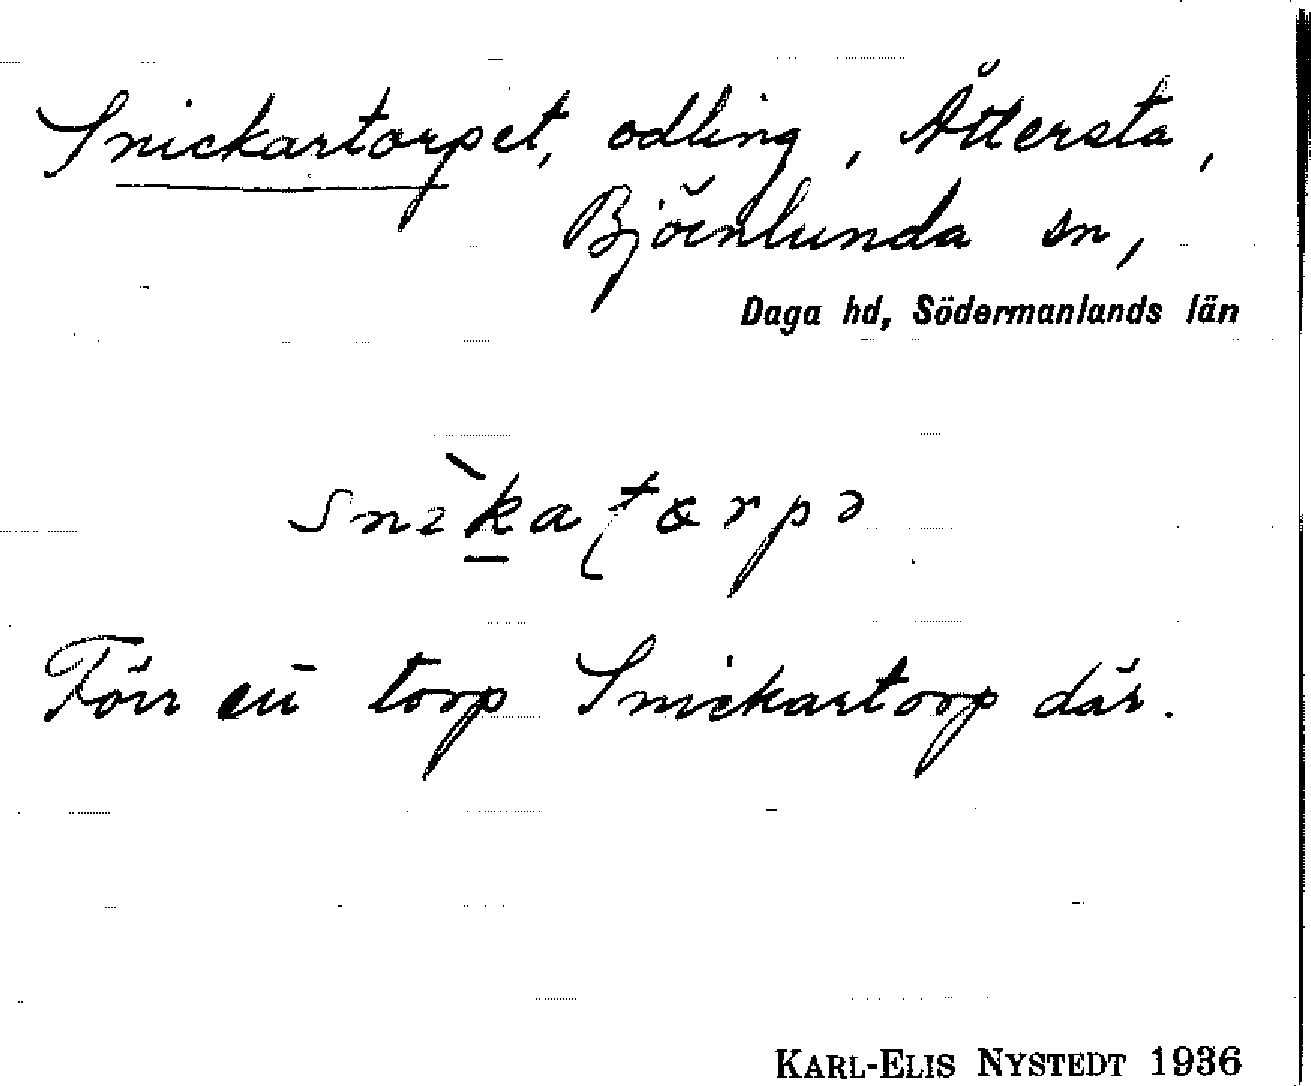 Snickartorpet, odling, Åttersta,
Björnlunda sn,
Daga hd, Södermanlands län
Förr ett torp Snickartorp där.
KARL-ELIS NYSTEDT 1936